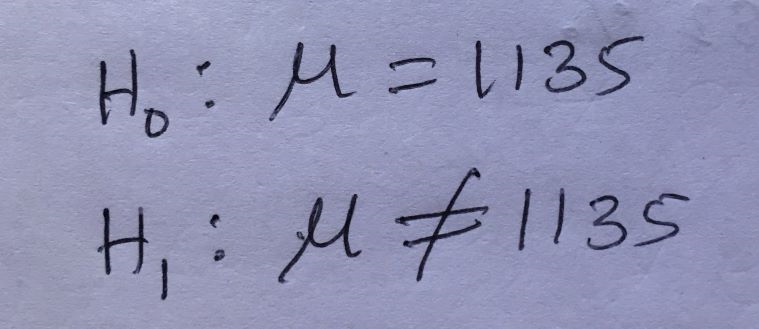 H₀ : μ = 1135
H₁ : μ ≠ 1135